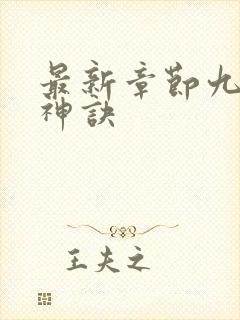 最新章節九
神訣
王夫之